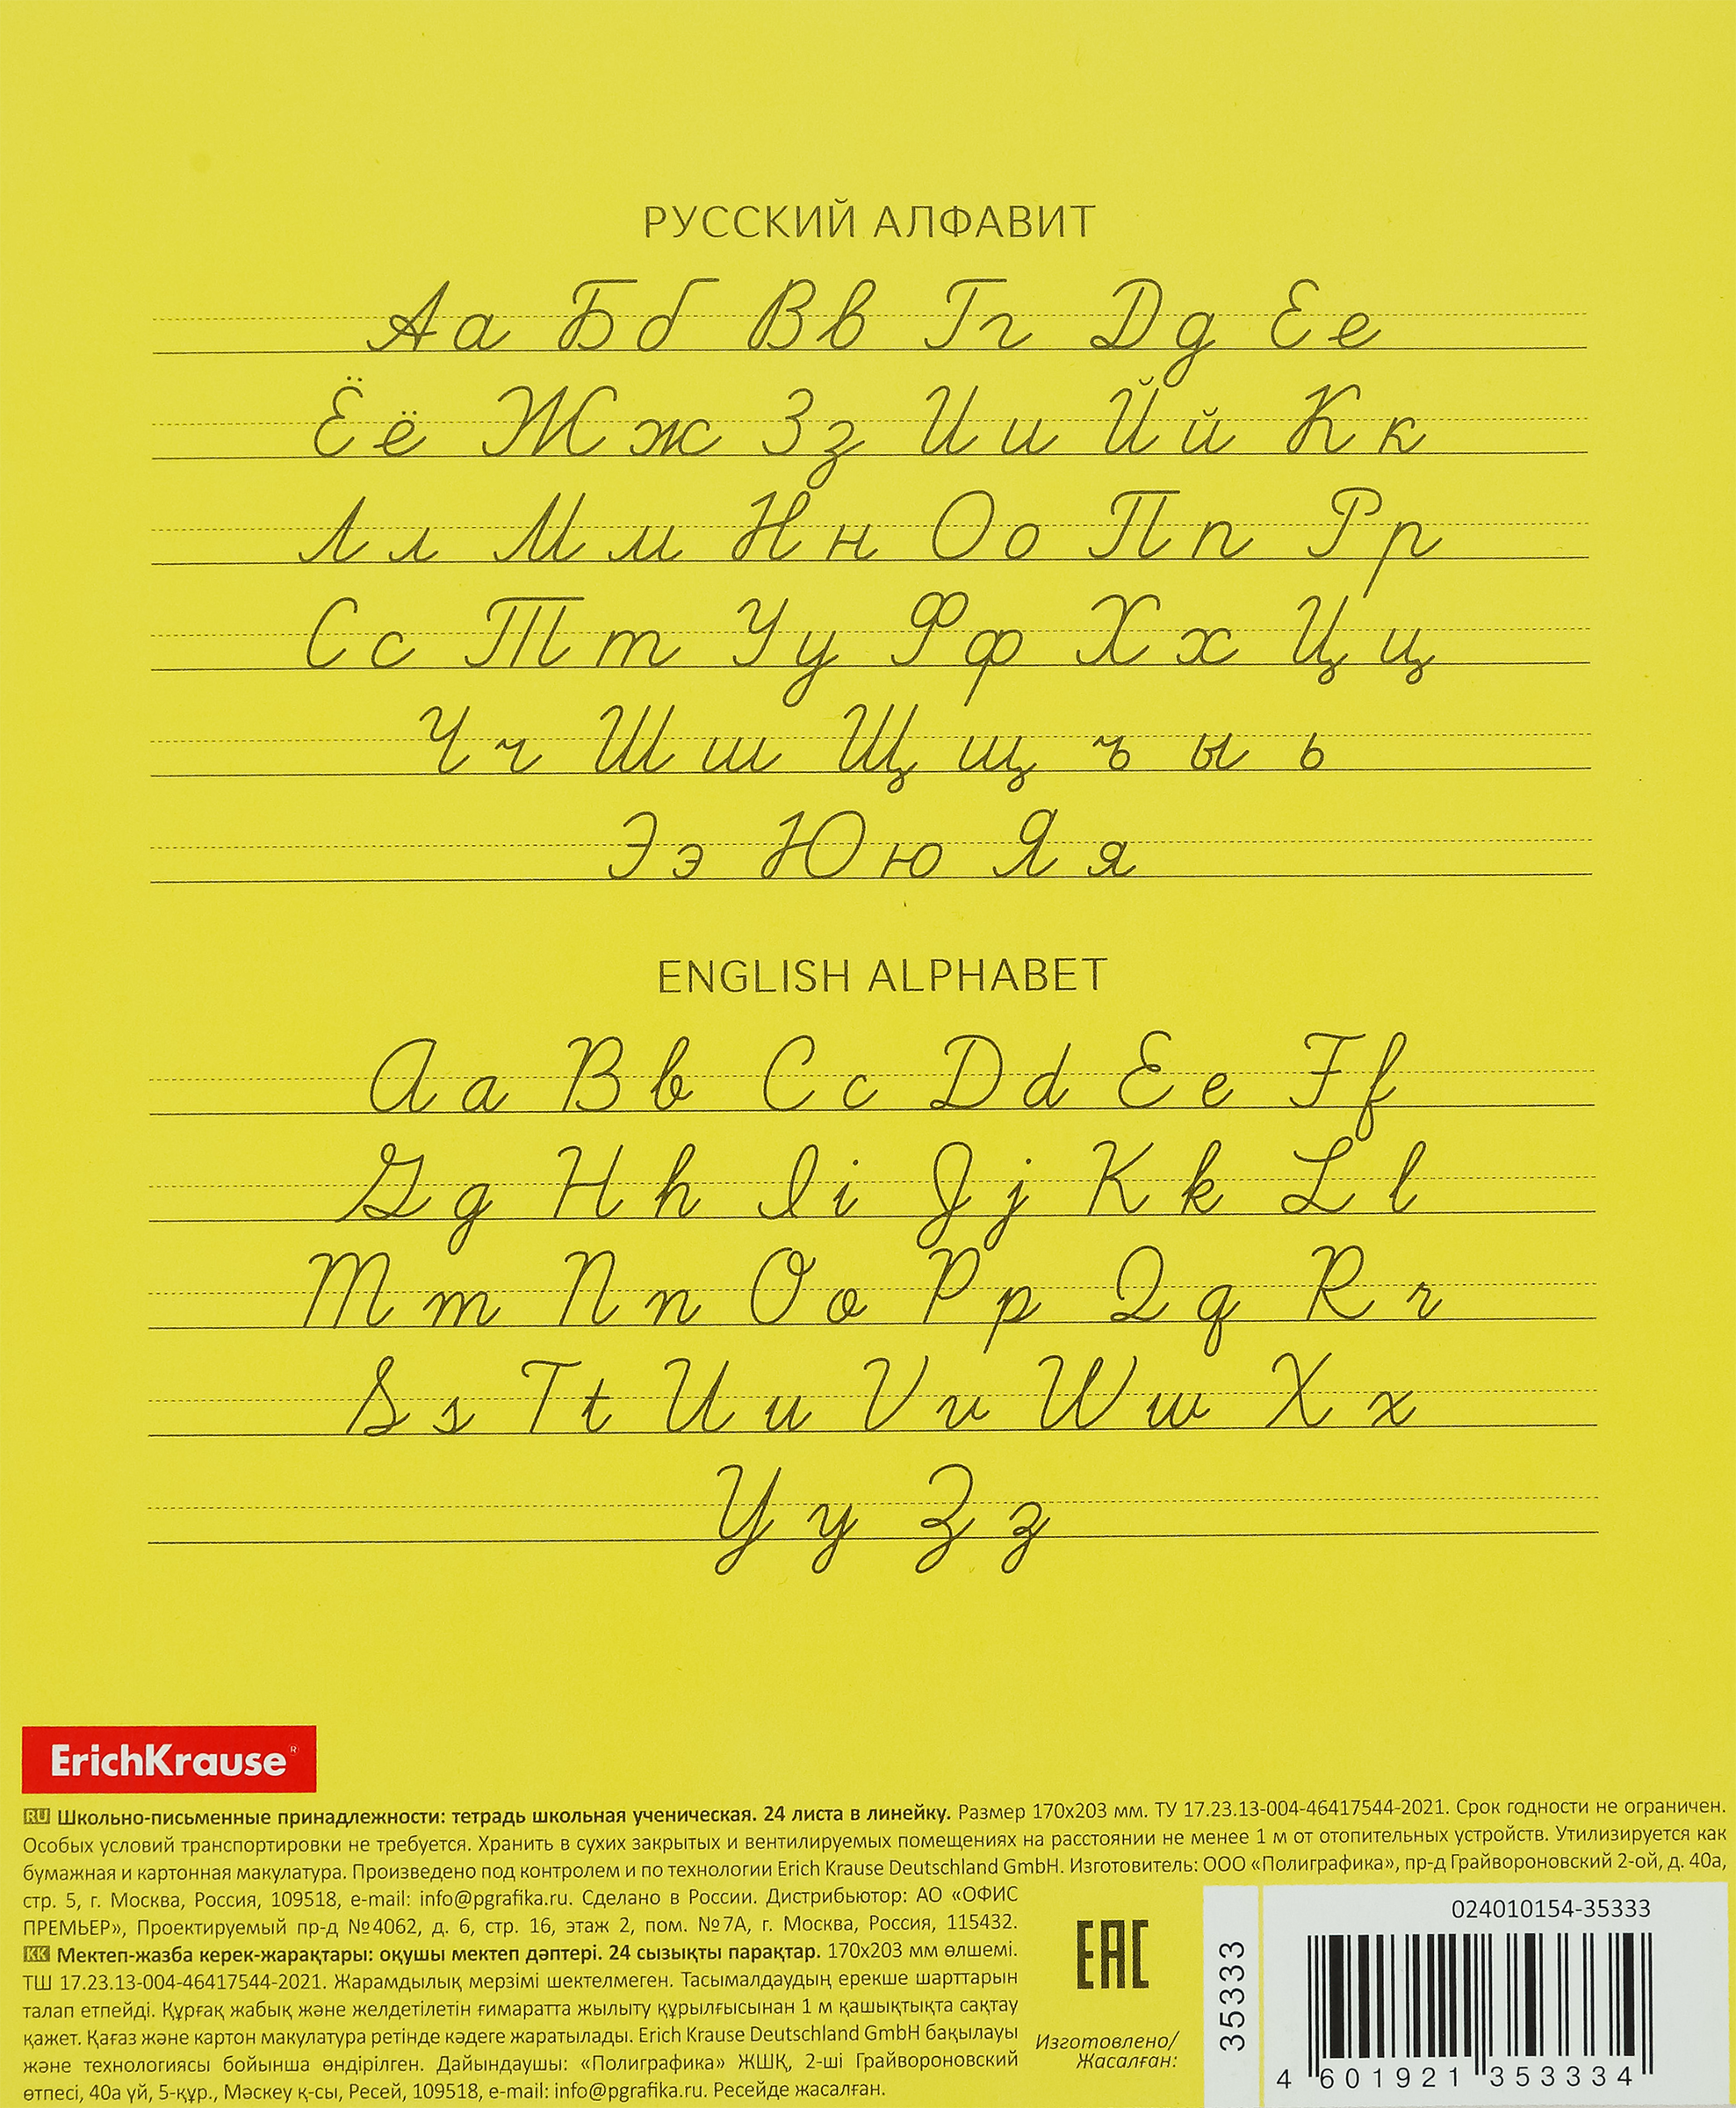 РУССКИЙ АЛФАВИТ
Аа Бб Вв Гг Дд Ее
Ёё Жж Зз Ии Йй Кк
Лл Мм Нн Оо Пп Рр
Сс Тт Уу Фф Хх Цц
Чч Шш Щщ ъ ы ь
Ээ Юю Яя
ENGLISH ALPHABET
Aa Bb Cc Dd Ee Ff
Gg Hh Ii Jj Kk Ll
Mm Nn Oo Pp Qq Rr
Ss Tt Uu Vv Ww Xx
Yy Zz
ErichKrause®
RU Школьно-письменные принадлежности: тетрадь школьная ученическая. 24 листа в линейку. Размер 170x203 мм. ТУ 17.23.13-004-46417544-2021. Срок годности не ограничен.
Особых условий транспортировки не требуется. Хранить в сухих закрытых и вентилируемых помещениях на расстоянии не менее 1 м от отопительных устройств. Утилизируется как
бумажная и картонная макулатура. Произведено под контролем и по технологии Erich Krause Deutschland GmbH. Изготовитель: ООО «Полиграфика», пр-д Грайвороновский 2-ой, д. 40а,
стр. 5, г. Москва, Россия, 109518, e-mail: info@pgrafika.ru. Сделано в России. Дистрибьютор: АО «ОФИС
ПРЕМЬЕР», Проектируемый пр-д №4062, д. 6, стр. 16, этаж 2, пом. №7А, г. Москва, Россия, 115432.
KK Мектеп-жазба керек-жарақтары: оқушы мектеп дәптері. 24 сызықты парақтар. 170x203 мм өлшемі.
ТШ 17.23.13-004-46417544-2021. Жарамдылық мерзімі шектелмеген. Тасымалдаудың ерекше шарттарын
талап етпейді. Құрғақ жабық және желдетілетін ғимаратта жылыту құрылғысынан 1 м қашықтықта сақтау
қажет. Қағаз және картон макулатура ретінде кәдеге жаратылады. Erich Krause Deutschland GmbH бақылауы
және технологиясы бойынша өндірілген. Дайындаушы: «Полиграфика» ЖШҚ, 2-ші Грайвороновский
өтпесі, 40а үй, 5-құр., Мәскеу қ-сы, Ресей, 109518, e-mail: info@pgrafika.ru. Ресейде жасалған.
EAC
Изготовлено/
Жасалған:
35333
024010154-35333
4 601921 353334